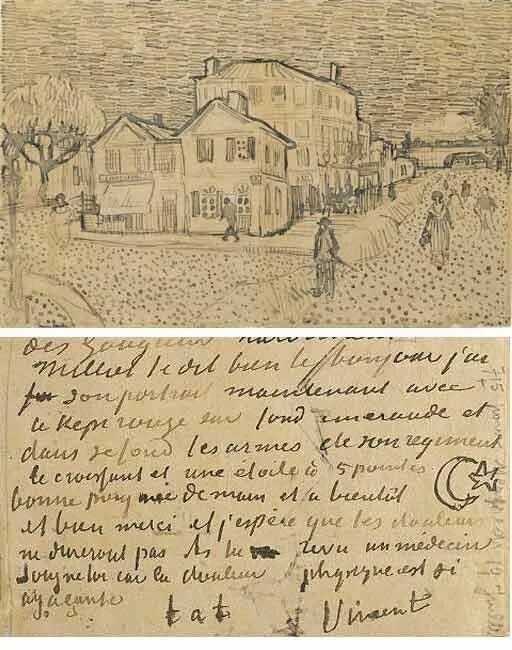 des
Milliet te dit bien le bonjour j'ai
son portrait maintenant avec
le Kepi rouge sur fond emeraude et
dans ce fond les armes de son regiment
le croissant et une étoile à 5 pointes
bonne poignée de main et a bientôt
et bien merci et j'espère que les douleurs
ne dureront pas As tu revu un medecin
Soigne toi car la douleur physique est si
agaçante
t a t Vincent